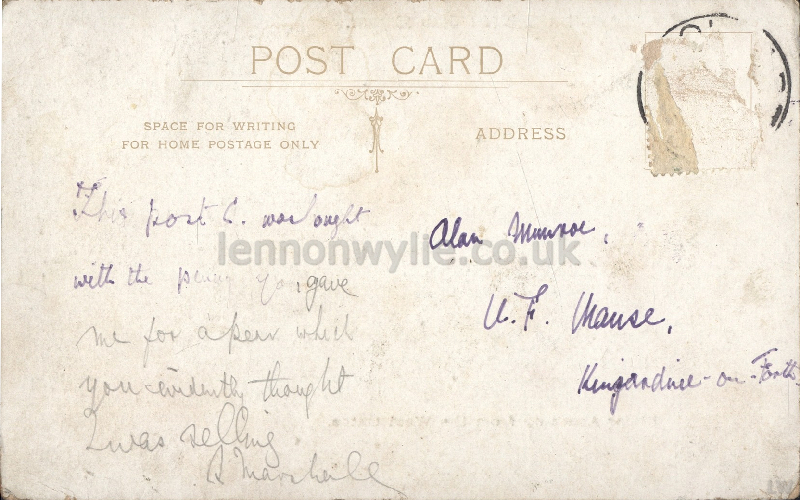 POST CARD
SPACE FOR WRITING
FOR HOME POSTAGE ONLY
ADDRESS
This post C. was bought
with the penny you gave
me for a pen which
you evidently thought
I was selling
Alan Munroe,
U. F. Manse,
Kincardine-on-Forth
lennonwylie.co.uk